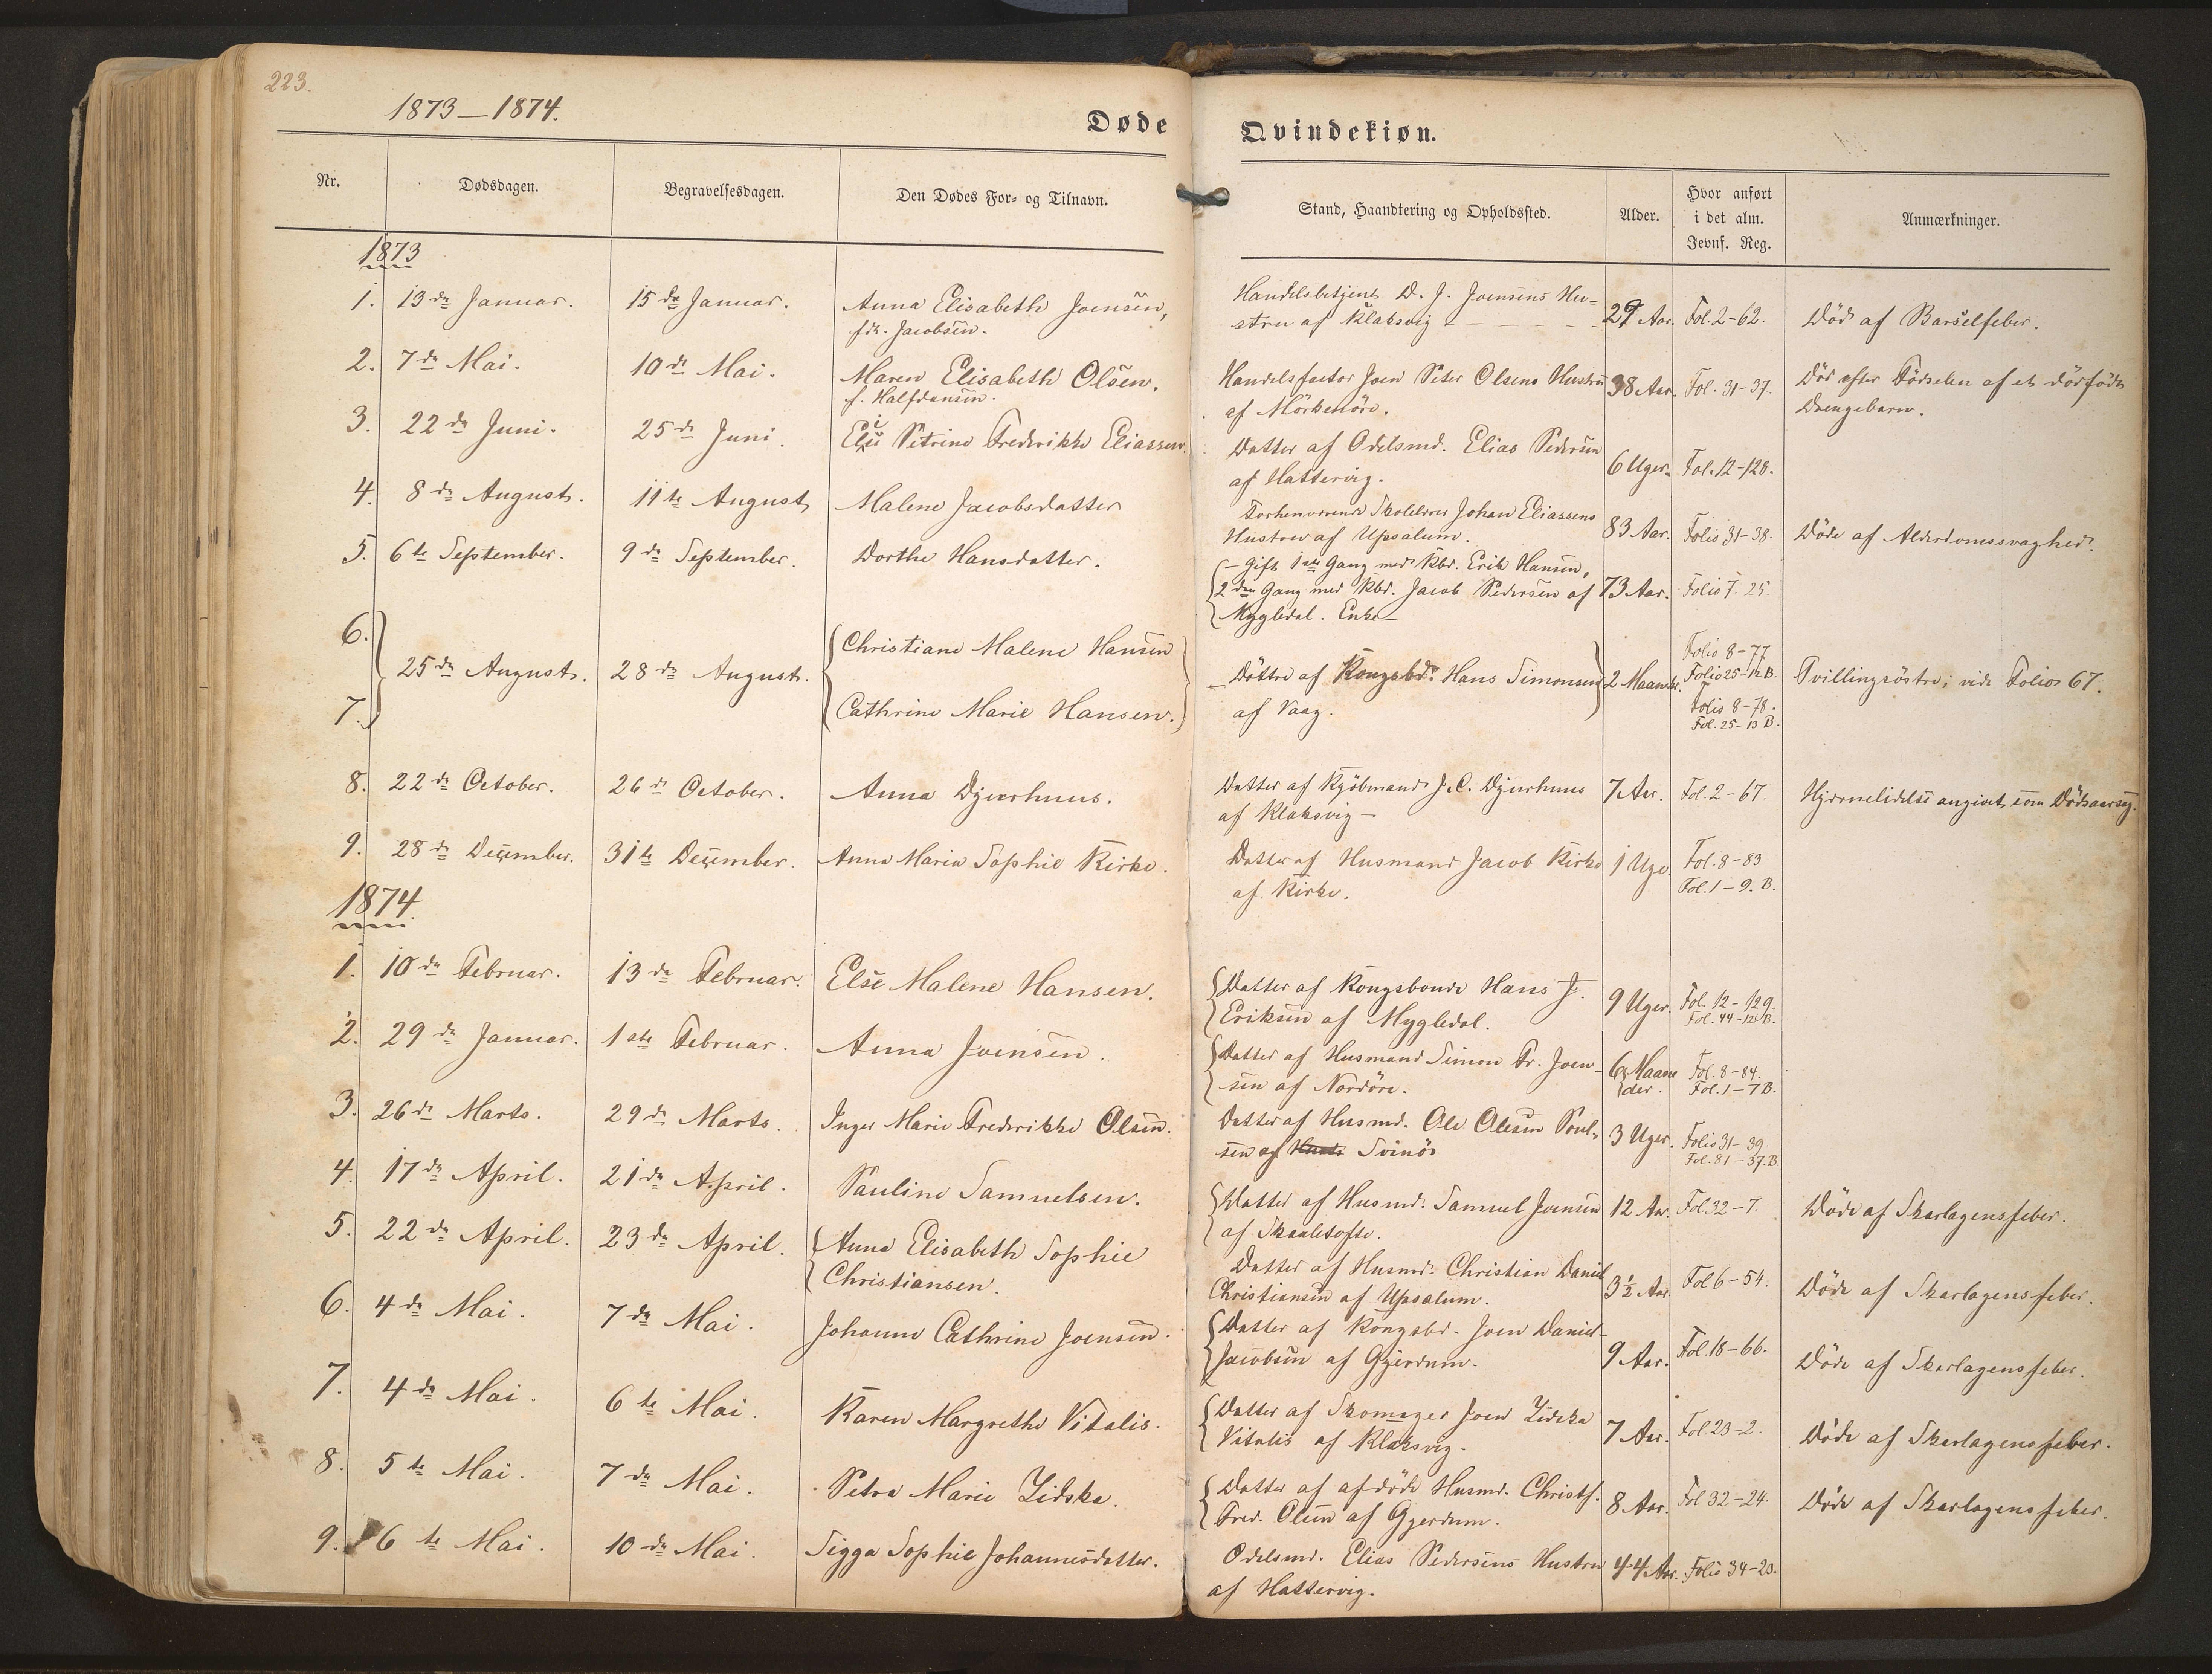 223.
1873–1874.
Døde
Qvindekiøn.
Nr.
Dødsdagen.
Begravelsesdagen.
Den Dødes For- og Tilnavn.
Stand, Haandtering og Opholdssted.
Alder.
Hvor anført
i det alm.
Jevnf. Reg.
Anmærkninger.
1873
1. 13de Januar. 15de Januar. Anna Elisabeth Joensen, Handelsbetjent D. J. Joensens Hu-
fdt. Jacobsen. stru af Klaksvig – – – – – 29 Aar. Fol. 2–62. Død af Barselfeber.
2. 7de Mai. 10de Mai. Maren Elisabeth Olsen. Handelsfactor Joen Peter Olsens Hustru 38 Aar. Fol. 31–37. Død efter Fødselen af et dødfødt
f. Halfdansen. af Mörkenöre. Drengebarn.
3. 22de Juni. 25de Juni. Else Petrine Frederikke Eliassen. Datter af Odelsmd. Elias Pedersen
af Hattervig. 6 Uger. Fol. 12–128.
4. 8de August. 11te August Malene Jacobsdatter Forhenværende Skolelærer Johan Eliassens
Hustru af Upsalum. 83 Aar. Folio 31–38. Døde af Alderdomssvaghed.
5. 6te September. 9de September. Dorthe Hansdatter. – Gift 1ste Gang med Kbd. Erik Hansen,
2den Gang med Kbd. Jacob Pedersen af 73 Aar. Folio 7–25.
Mygledal. Enke –
6. Christiane Malene Hansen Folio 8–77
25de August. 28de August. Döttre af Kongsbd. Hans Simonsen 2 Maaneder. Folio 25–12 B. Tvillingsöstre; vide Folio 67.
7. Cathrine Marie Hansen. af Vaag. Folio 8–78.
Fol. 25–13 B.
8. 22de October. 26de October. Anna Djurhuus. Datter af Kjöbmand J. C. Djurhuus 7 Aar. Fol. 2–67. Hjernelidelse angivet som Dødsaarsag.
af Klaksvig –
9. 28de December. 31te December. Anna Maria Sophie Kirke. Datter af Husmand Jacob Kirke 1 Uge. Fol. 8–83
af Kirke. Fol. 1–9. B.
1874.
1. 10de Februar. 13de Februar. Else Malene Hansen. Datter af Kongsbonde Hans J. 9 Uger. Fol. 12–129.
Eriksen af Mygledal. Fol. 44–12 B.
2. 29de Januar. 1ste Februar. Anna Joensen. Datter af Husmand Simon Fr. Joen- 6 Maane Fol. 8–84.
sen af Nordöre. der. Fol. 1–7 B.
3. 26de Marts. 29de Marts. Inger Marie Frederikke Olsen. Datter af Husmd. Ole Olesen Poul- 3 Uger. Folio 31–39.
sen af Svinö Fol. 81–37. B.
4. 17de April. 21de April. Pauline Samuelsen. Datter af Husmd. Samuel Joensen 12 Aar. Fol. 32–7. Døde af Skarlagensfeber.
af Skaaletofte.
5. 22de April. 23de April. Anna Elisabeth Sophie Datter af Husmd. Christian Daniel
Christiansen. Christiansen af Upsalum. 3½ Aar Fol 6–54. Døde af Skarlagensfeber.
6. 4de Mai. 7de Mai. Johanne Cathrine Joensen. Datter af Kongsbd. Joen Daniel
Jacobsen af Gjerdum. 9 Aar. Fol. 18–66. Døde af Skarlagensfeber.
7. 4de Mai. 6te Mai. Karen Margrethe Vitalis. Datter af Skomager Joen Lidska
Vitalis af Klaksvig. 7 Aar. Fol. 23–2. Døde af Skarlagensfeber.
8. 5te Mai. 7de Mai. Petra Marie Lidska. Datter af afdöde Husmd. Christf.
Fred. Olsen af Gjerdum. 8 Aar. Fol 32–24. Døde af Skarlagensfeber.
9. 6te Mai. 10de Mai. Sigga Sophie Johannesdatter. Odelsmd. Elias Pedersens Hustru 44 Aar. Folio 34–23.
af Hattervig.